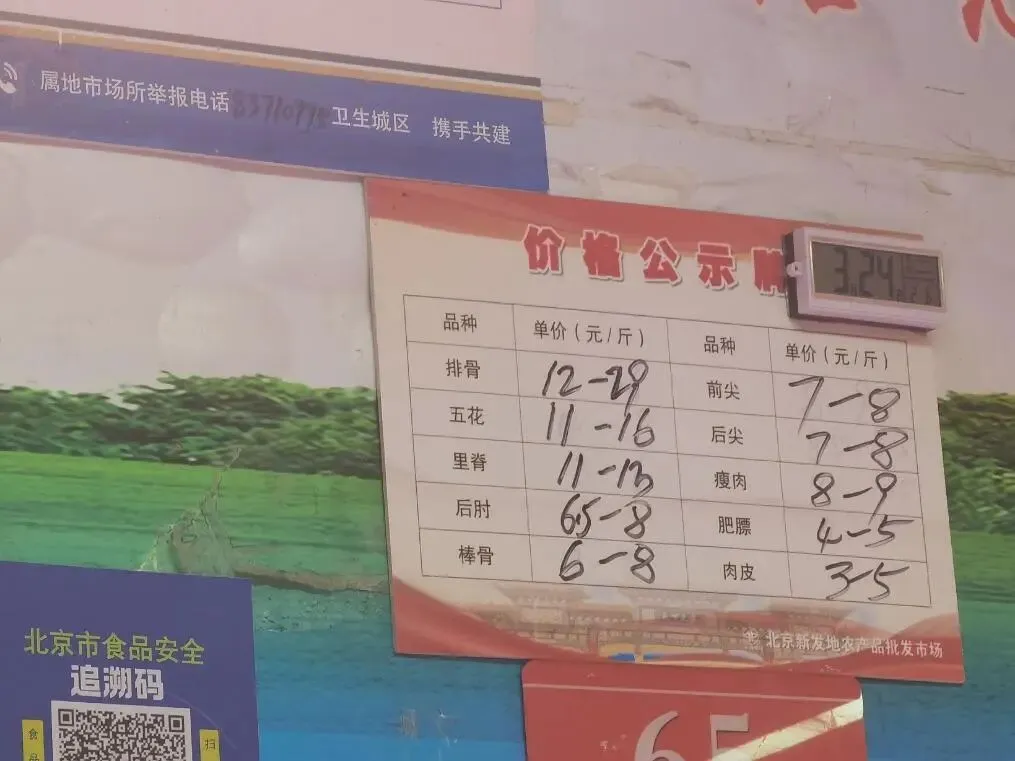 属地市场所举报电话 卫生城区 携手共建
价格公示牌
3.24
品种 单价（元/斤） 品种 单价（元/斤）
排骨 12-29 前尖 7-8
五花 11-16 后尖 7-8
里脊 11-13 瘦肉 8-9
后肘 6.5-8 肥膘 4-5
棒骨 6-8 肉皮 3-5
北京新发地农产品批发市场
北京市食品安全
追溯码
食品
扫
65